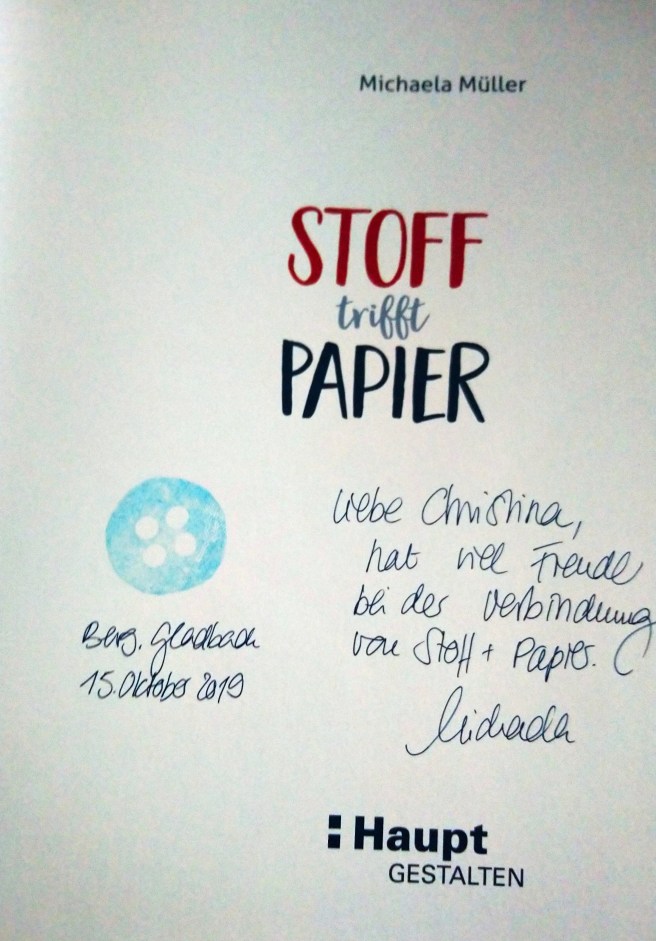 Michaela Müller
STOFF
trifft
PAPIER
Liebe Christina,
hat viel Freude
bei der Verbindung
von Stoff + Papier.
Berg. Gladbach
15. Oktober 2019
Michaela
Haupt
GESTALTEN